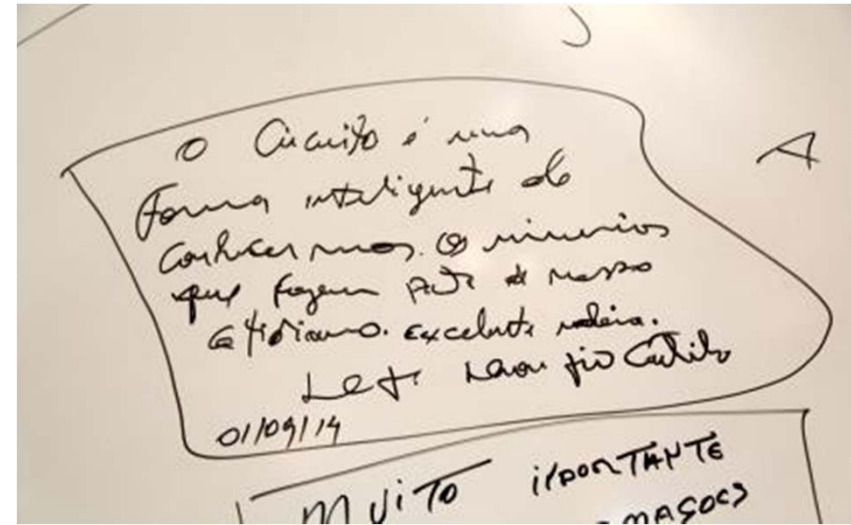 O Circuito é uma
Forma inteligente de
conhecermos os minerios
que fazem parte de nosso
cotidiano. Excelente ideia.
01/09/14
MUITO IMPORTANTE